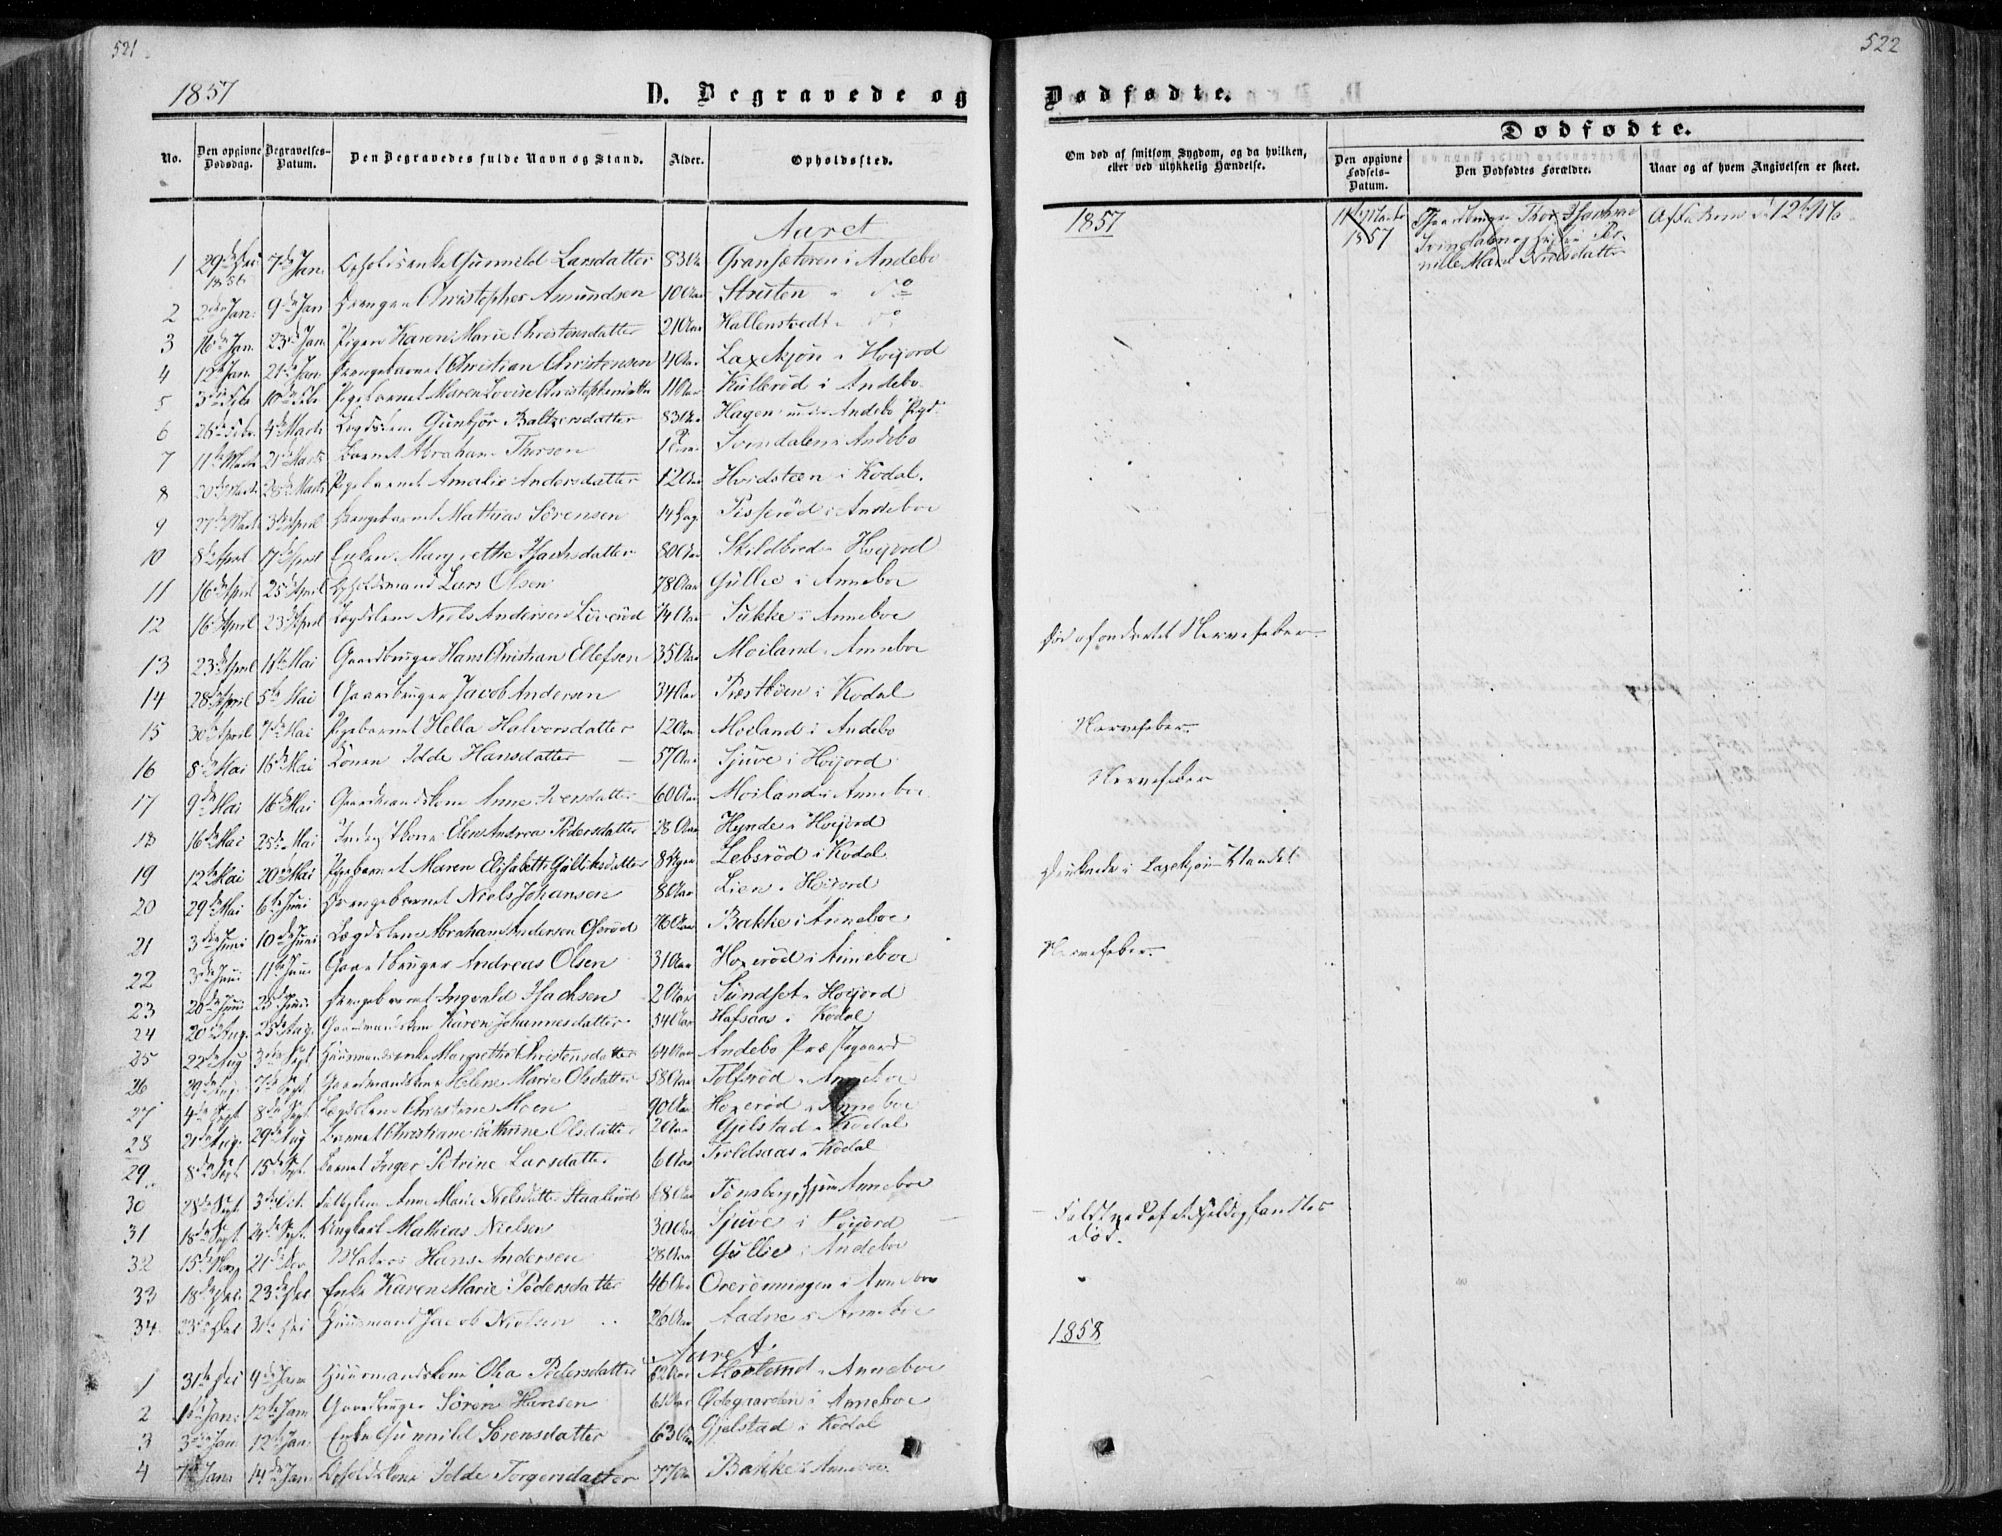 521
522
1857
D. Begravede og
Dødfødte.
No.
Den opgivne Dødsdag.
Begravelses-Datum.
Den Begravedes fulde Navn og Stand.
Alder.
Opholdssted.
Om død af smitsom Sygdom, og da hvilken, eller ved ulykkelig Hændelse.
Dødfødte.
Den opgivne Fødsels-Datum.
Den Dødfødtes Forældre.
Naar og af hvem Angivelsen er skeet.
Aaret
1857
1 29de Dec 1856 7de Jan. Gunnild Larsdatter 83 Aar Gransæteren i Andebo
2 2den Jan. 9de Jan Drengen Christopher Amundsen 10 Aar Struten i do
3 16de Jan. 23de Jan. Pigen Karen Marie Christensdatter 21 Aar Hallenstvedt i do
4 12te Jan. 21de Jan. Drengebarnet Christian Christensen 4 Aar Laxekjøn i Høijord
5 3die Feb 10de Feb Pigebarnet Maren Lovise Christophersdatter 11 Aar Kulerød i Andebo
6 26de Febr. 4de Marts Lægdslem Gunbjør Baltzersdatter 83 Aar Hagen under Andebo Pgd.
7 11te Marts 21de Marts Barnet Abraham Thorsen 1 Svindalen i Andebo
8 20de Marts 28de Marts Pigebarnet Amalie Andersdatter 12 Aar Hvidsteen i Kodal.
9 27de Marts 3die April Drengebarnet Mathias Sörensen 14 Dage Pisserød i Andeboe
10 8de April 17de April Enken Margrethe Isachsdatter 80 Aar Skildbred i Høijord
11 16de April 25de April Lars Olsen 78 Aar Gullie i Anneboe
12 16de April 23de April Lægdslem Niels Andersen Löverød 74 Aar Sukke i Anneboe
13 23de April 1ste Mai Gaardbruger Hans Christian Ellefsen 35 Aar Moiland i Anneboe
Nervefeber
14 28de April 5te Mai Gaardbruger Jacob Andersen 34 Aar Præstbøen i Kodal
15 30de April 7de Mai Pigebarnet Hella Halvorsdatter 12 Aar Moiland i Andebo
Nervefeber
16 8de Mai 16de Mai Konen Idde Hansdatter 57 Aar Sjuve i Høijord
17 9de Mai 16de Mai Gaardmandskone Anne Iversdatter 60 Aar Moiland i Anneboe
Nervefeber
18 16de Mai 25de Mai Elen Andrea Pedersdatter 28 Aar Hynde i Høijord
19 12te Mai 20de Mai Pigebarnet Maren Elisabeth Gulliksdatter 8 Uger Lebsrød i Kodal
20 29de Mai 6te Juni Drengebarnet Niels Johansen 8 Aar Lien i Høijord
Druknede i Laxekjøn Vandet
21 3die Juni 10de Juni Lægdslem Abraham Andersen 76 Aar Bakke i Anneboe
22 3die Juni 11te Juni Gaardbruger Andreas Olsen 31 Aar Hoxerød i Anneboe
Nervefeber
23 20de Juni 25de Juni Drengebarnet Ingvald Isachsen 2 Aar Sundset i Høijord
24 20de Aug. 25de Aug. Gaardmandskone Karen Johannesdatter 54 Aar Hafsaas i Kodal
25 22de Aug 3die Sept Huusmandsenke Margrethe Christensdatter 64 Aar Andebo Præstegaard
26 Gaardmandskone Helene Marie Olsdatter 58 Aar Tolfsrød i Anneboe
27 4de Sept. 8de Sept. Lægdslem Christine Moen 90 Aar Hoxerød i Anneboe
28 21de Aug. 29de Aug Barnet Christiane Cathrine Olsdatter 2 Aar Gjelstad i Kodal
29 8de Sept. 15de Sept. Barnet Inger Petrine Larsdatter 6 Aar Troldsaas i Kodal
30 28de Sept. 3die Oct. Anne Marie Nielsdatter 68 Aar Tønsberg, Anneboe
31 18de Sept 24de Sept. Ungkarl Mathias Nielsen 30 Aar Sjuve i Høijord
død.
32 15de Nov 21de Nov. Matros Hans Andersen 28 Aar Gullie i Andeboe
33 18de Dec. 23de Dec Enke Karen Marie Pedersdatter 46 Aar Overönningen i Anneboe
34. 23de Dec 31te Dec Huusmand Jacob Nielsen 26 Aar Aadne i Anneboe
Aaret
1858
1 31te Dec 4de Jan Huusmandskone Olea Pedersdatter 62 Aar Møeland i Anneboe
2 1ste Jan. 12te Jan Gaardbruger Sören Hansen 61 Aar Ødegaarden i Anneboe
3 3die Jan. 12te Jan. Enke Gunnild Sörensdatter 63 Aar Gjelstad i Kodal
4 7de Jan. 14de Jan. Idde Torgersdatter 77 Aar Bakke i Anneboe
11te Marts 1857
Gaardbruger Thor Isachsen Svindalen og Pernille Marie Nielsdatter